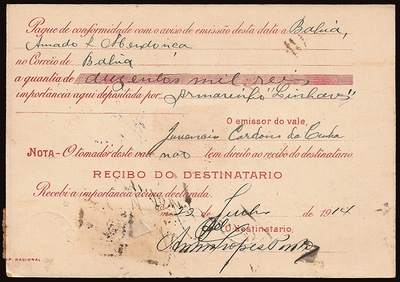 Pague de conformidade com o aviso de emissão desta data a Bahia,
Amado & Mendonça
no Correio de Bahia
a quantia de duzentos mil reis
importância aqui depositada por Armarinho "Linhares"
O emissor do vale,
Juvencio Cardoso da Cunha
NOTA - O tomador deste vale não tem direito ao recibo do destinatario.
RECIBO DO DESTINATARIO
Recebi a importância acima declarada.
em 22 de Junho de 1914
O destinatario,
P. NACIONAL